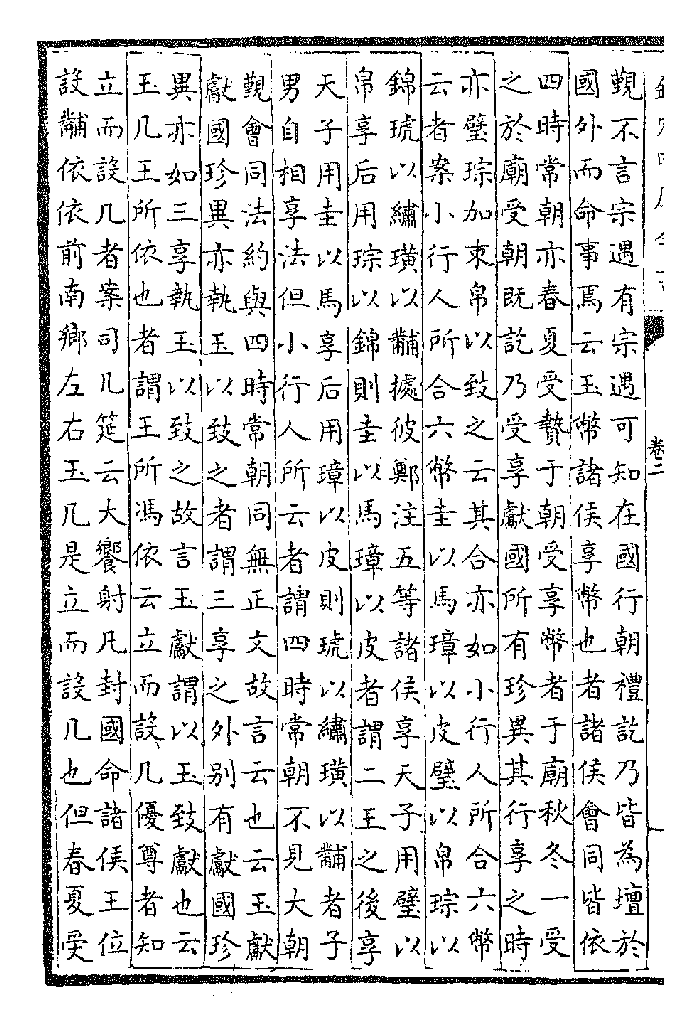 卷二
覲不言宗遇有宗遇可知在國行朝禮訖乃皆為壇於
國外而命事焉云玉幣諸侯享幣也者諸侯會同皆依
四時常朝亦春夏受贄于朝受享幣者于廟秋冬一受
之於廟受朝既訖乃受享獻國所有珍異其行享之時
亦璧琮加束帛以致之云其合亦如小行人所合六幣
云者案小行人所合六幣圭以馬璋以皮璧以帛琮以
錦琥以繡璜以黼據彼鄭注五等諸侯享天子用璧以
帛享后用琮以錦則圭以馬璋以皮者謂二王之後享
天子用圭以馬享后用璋以皮則琥以繡璜以黼者子
男自相享法但小行人所云者謂四時常朝不見大朝
覲會同法約與四時常朝同無正文故言云也云玉獻
獻國珍異亦執玉以致之者謂三享之外別有獻國珍
異亦如三享執玉以致之故言玉獻謂以玉致獻也云
玉几王所依也者謂王所馮依云立而設几優尊者知
立而設几者案司几筵云大饗射凡封國命諸侯王位
設黼依依前南鄉左右玉几是立而設几也但春夏受